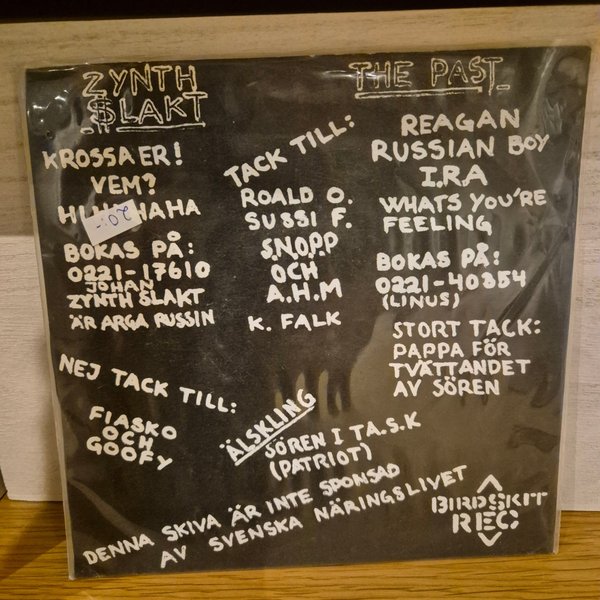 ZYNTH
SLAKT
KROSSA ER!
VEM?
HAHA
20:-
BOKAS PÅ:
0221-17610
JOHAN
ZYNTH SLAKT
ÄR ARGA RUSSIN
TACK TILL:
ROALD O.
SUSSI F.
SNOPP
OCH
A.H.M
K. FALK
THE PAST
REAGAN
RUSSIAN BOY
I.R.A
WHATS YOU'RE
FEELING
BOKAS PÅ:
0221-40854
(LINUS)
STORT TACK:
PAPPA FÖR
TVÄTTANDET
AV SÖREN
NEJ TACK TILL:
FIASKO
OCH
GOOFY
ÄLSKLING
SÖREN I T.A.S.K
(PATRIOT)
DENNA SKIVA ÄR INTE SPONSAD
AV SVENSKA NÄRINGSLIVET
BIRDSKIT
REC